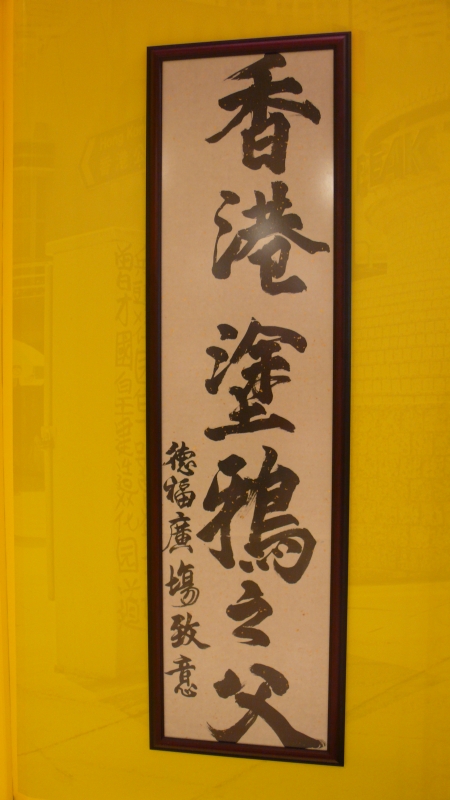 香港塗鴉之父
德福廣場致意